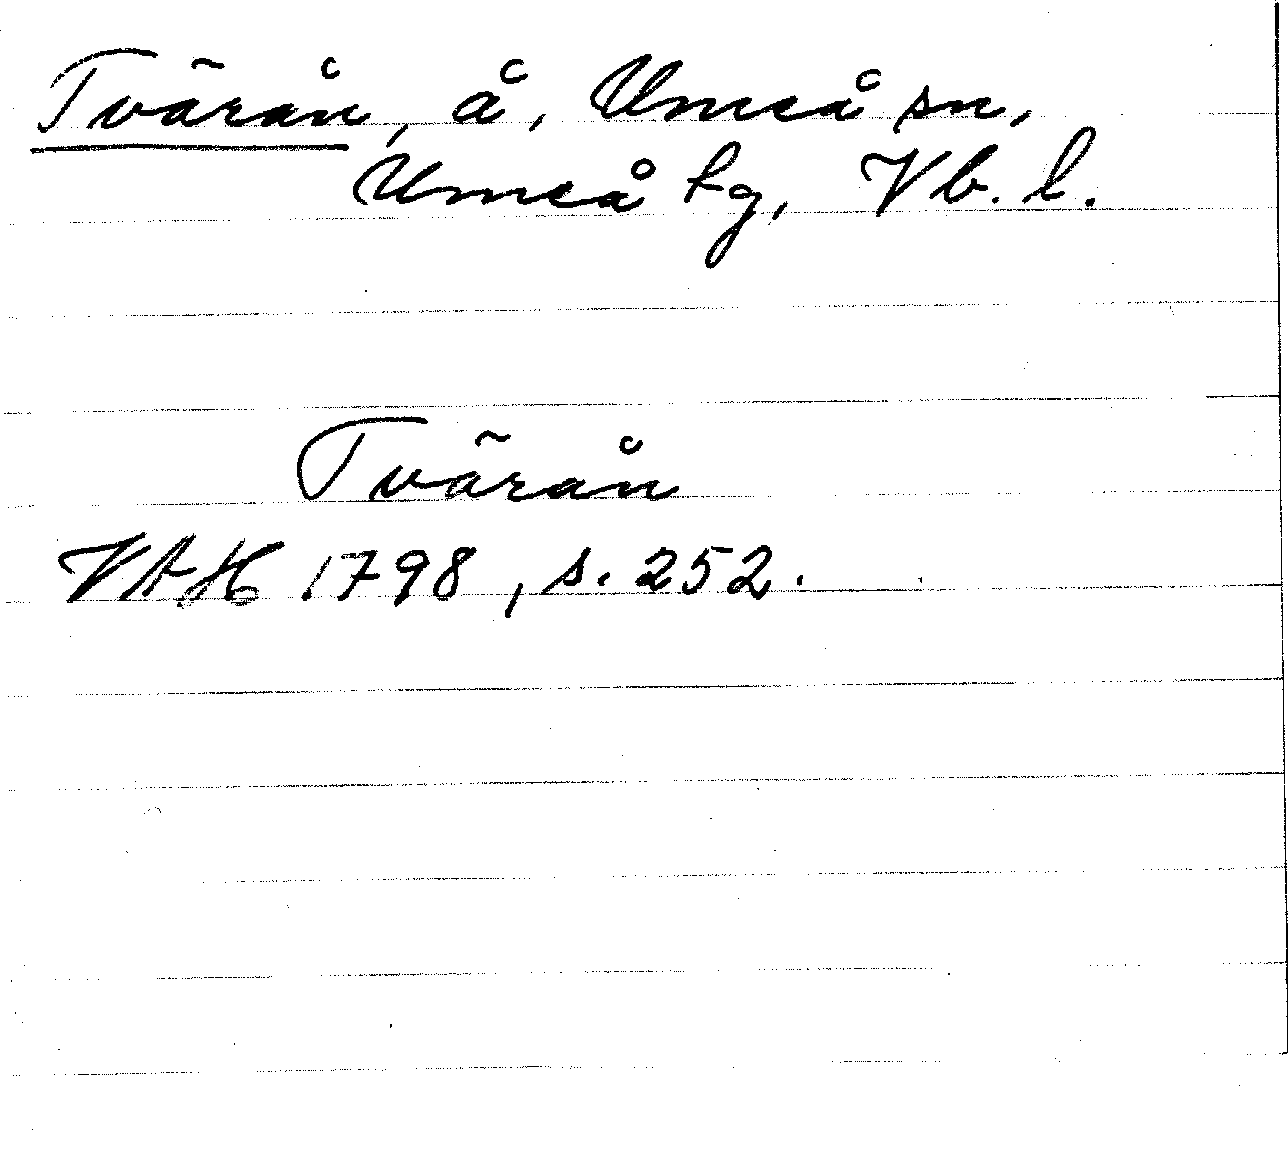 Tvärån, å, Umeå sn,
Umeå tg, Vb. l.
Tvärån
VAH 1798, s. 252.